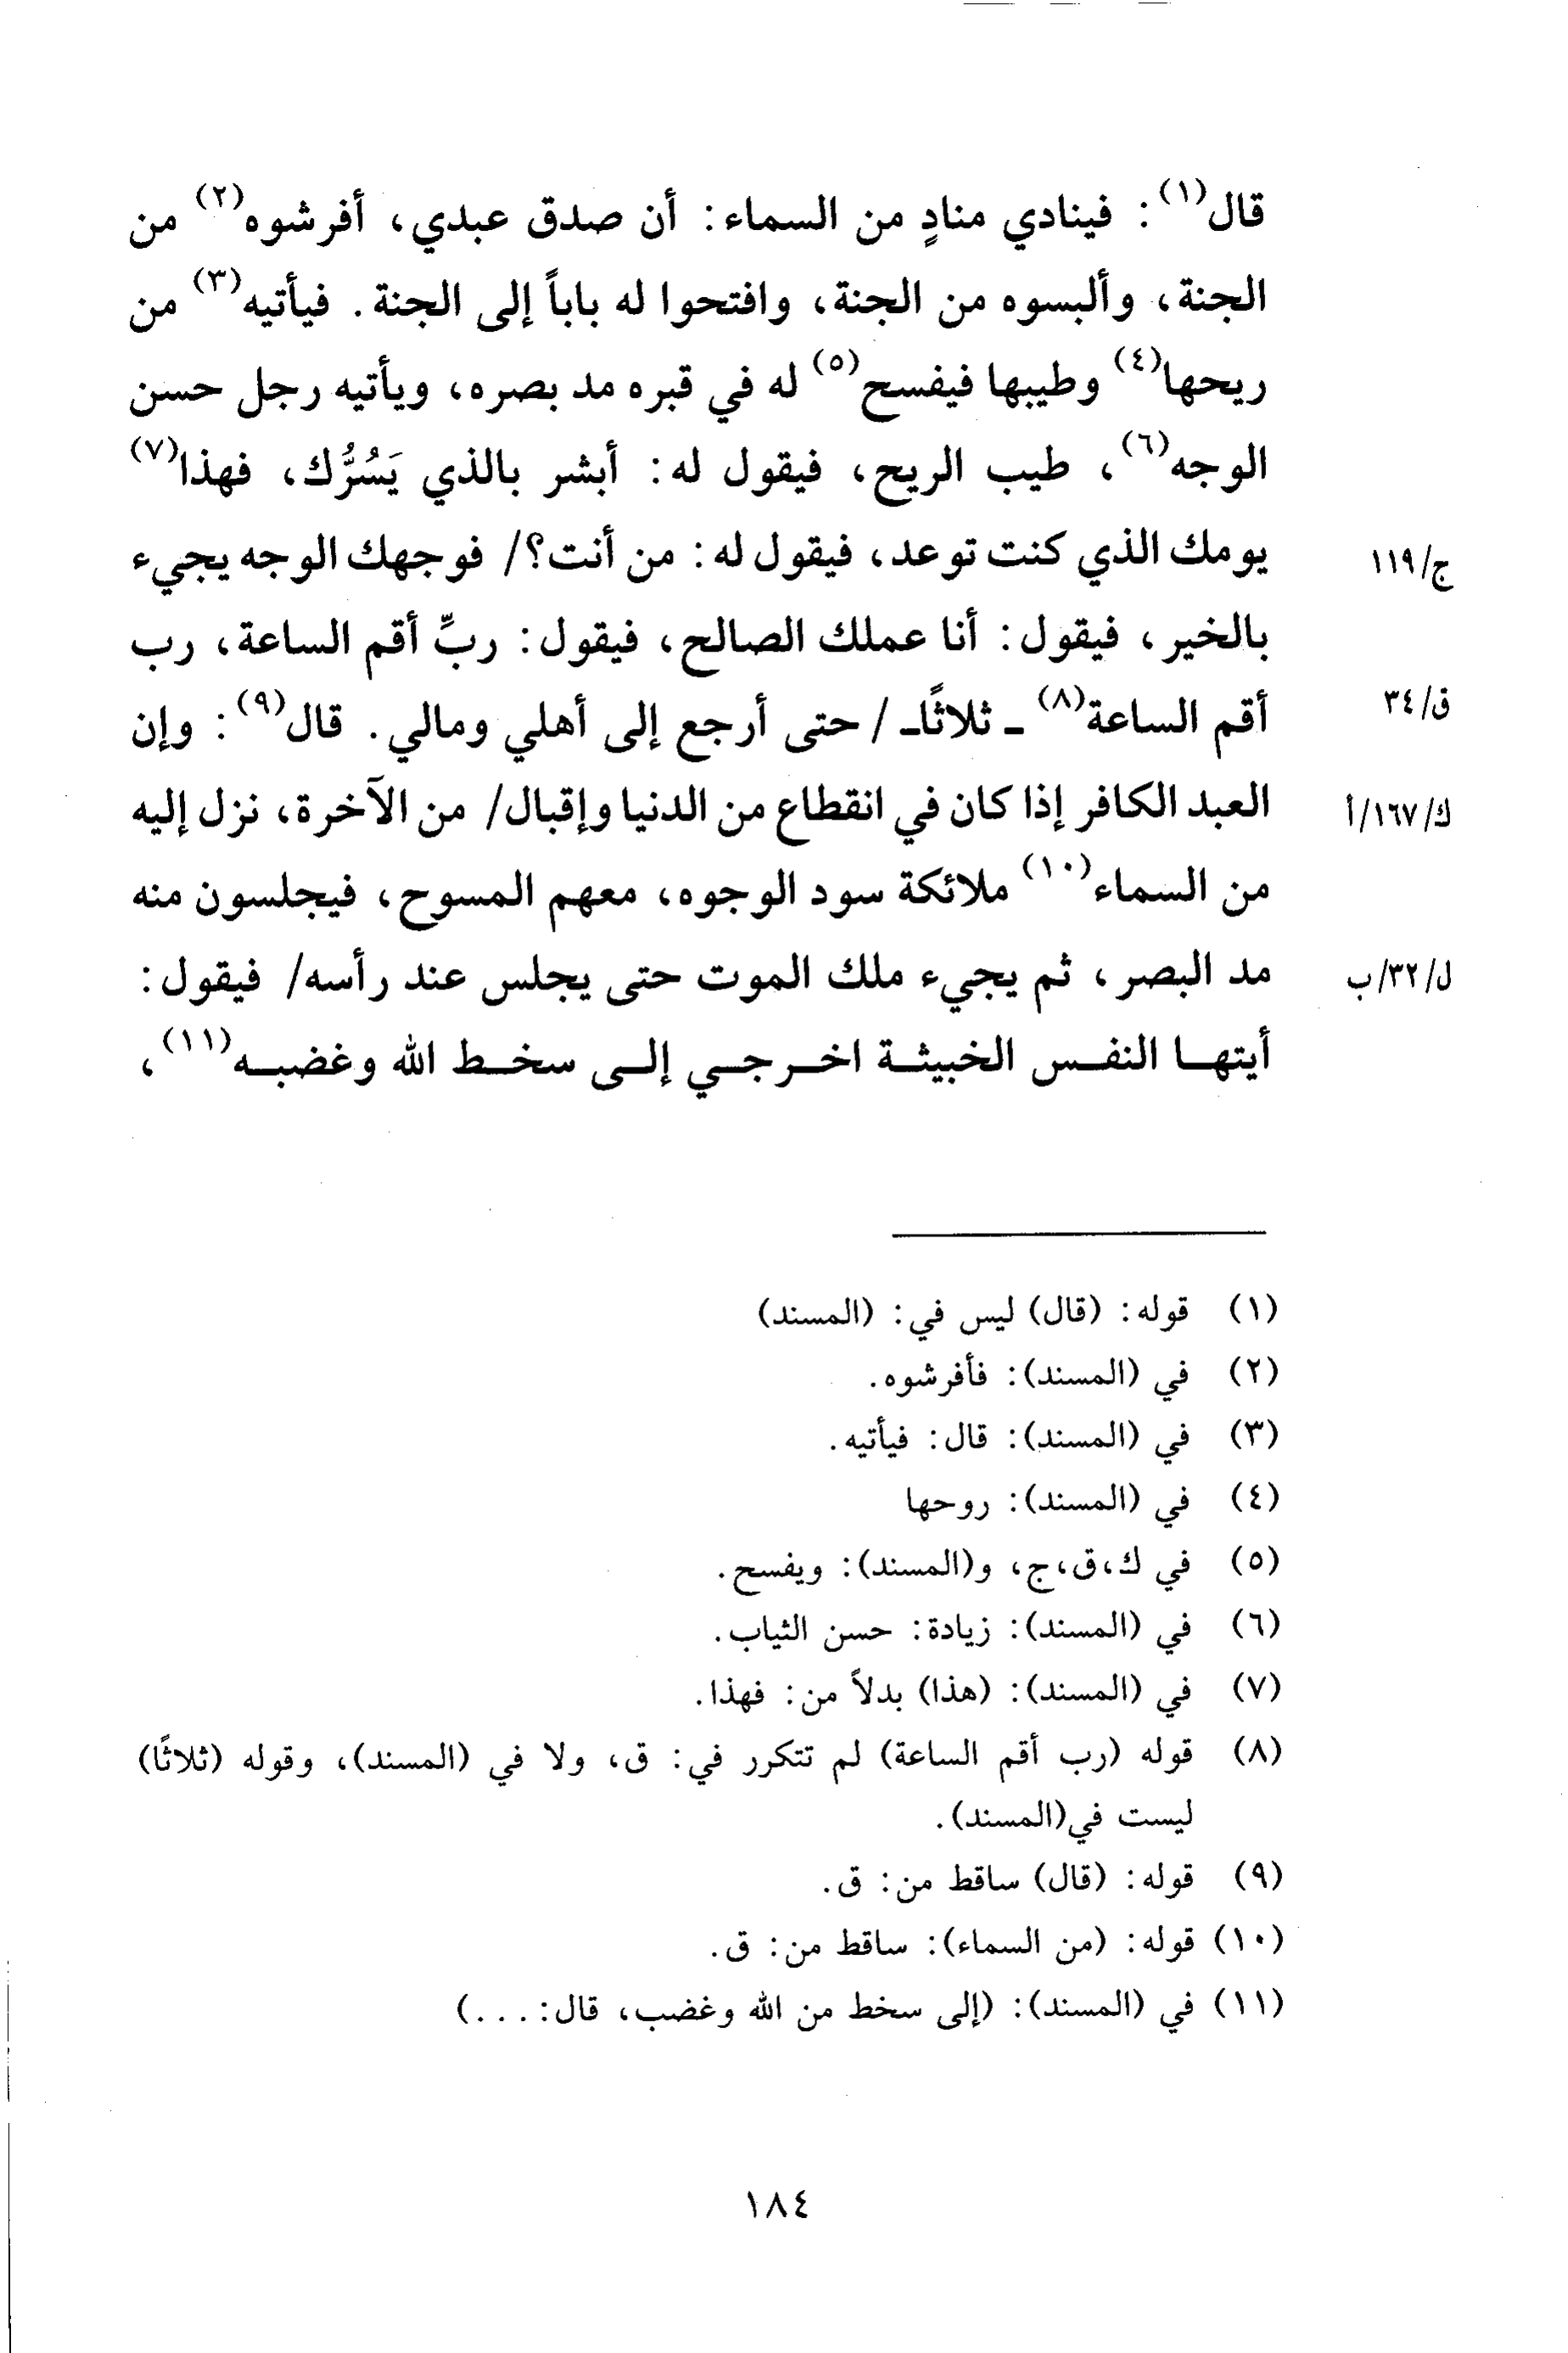 قال(١): فينادي منادٍ من السماء: أن صدق عبدي، أفرشوه(٢) من
الجنة، وألبسوه من الجنة، وافتحوا له باباً إلى الجنة. فيأتيه(٣) من
ريحها(٤) وطيبها فيفسح(٥) له في قبره مد بصره، ويأتيه رجل حسن
الوجه(٦)، طيب الريح، فيقول له: أبشر بالذي يَسُرُّك، فهذا(٧)
يومك الذي كنت توعد، فيقول له: من أنت؟/ فوجهك الوجه يجيء
ج/١١٩
بالخير، فيقول: أنا عملك الصالح، فيقول: ربِّ أقم الساعة، رب
أقم الساعة(٨) ـ ثلاثًاـ / حتى أرجع إلى أهلي ومالي. قال(٩): وإن
ق/٣٤
العبد الكافر إذا كان في انقطاع من الدنيا وإقبال/ من الآخرة، نزل إليه
ك/١٦٧/أ
من السماء(١٠) ملائكة سود الوجوه، معهم المسوح، فيجلسون منه
مد البصر، ثم يجيء ملك الموت حتى يجلس عند رأسه/ فيقول:
ل/٣٢/ب
أيتهـا النفـس الخبيثـة اخـرجـي إلـى سخـط الله وغضبـه(١١)،
(١) قوله: (قال) ليس في: (المسند)
(٢) في (المسند): فأفرشوه.
(٣) في (المسند): قال: فيأتيه.
(٤) في (المسند): روحها
(٥) في ك،ق،ج، و(المسند): ويفسح.
(٦) في (المسند): زيادة: حسن الثياب.
(٧) في (المسند): (هذا) بدلاً من: فهذا.
(٨) قوله (رب أقم الساعة) لم تتكرر في: ق، ولا في (المسند)، وقوله (ثلاثًا)
ليست في(المسند).
(٩) قوله: (قال) ساقط من: ق.
(١٠) قوله: (من السماء): ساقط من: ق.
(١١) في (المسند): (إلى سخط من الله وغضب، قال:...)
١٨٤